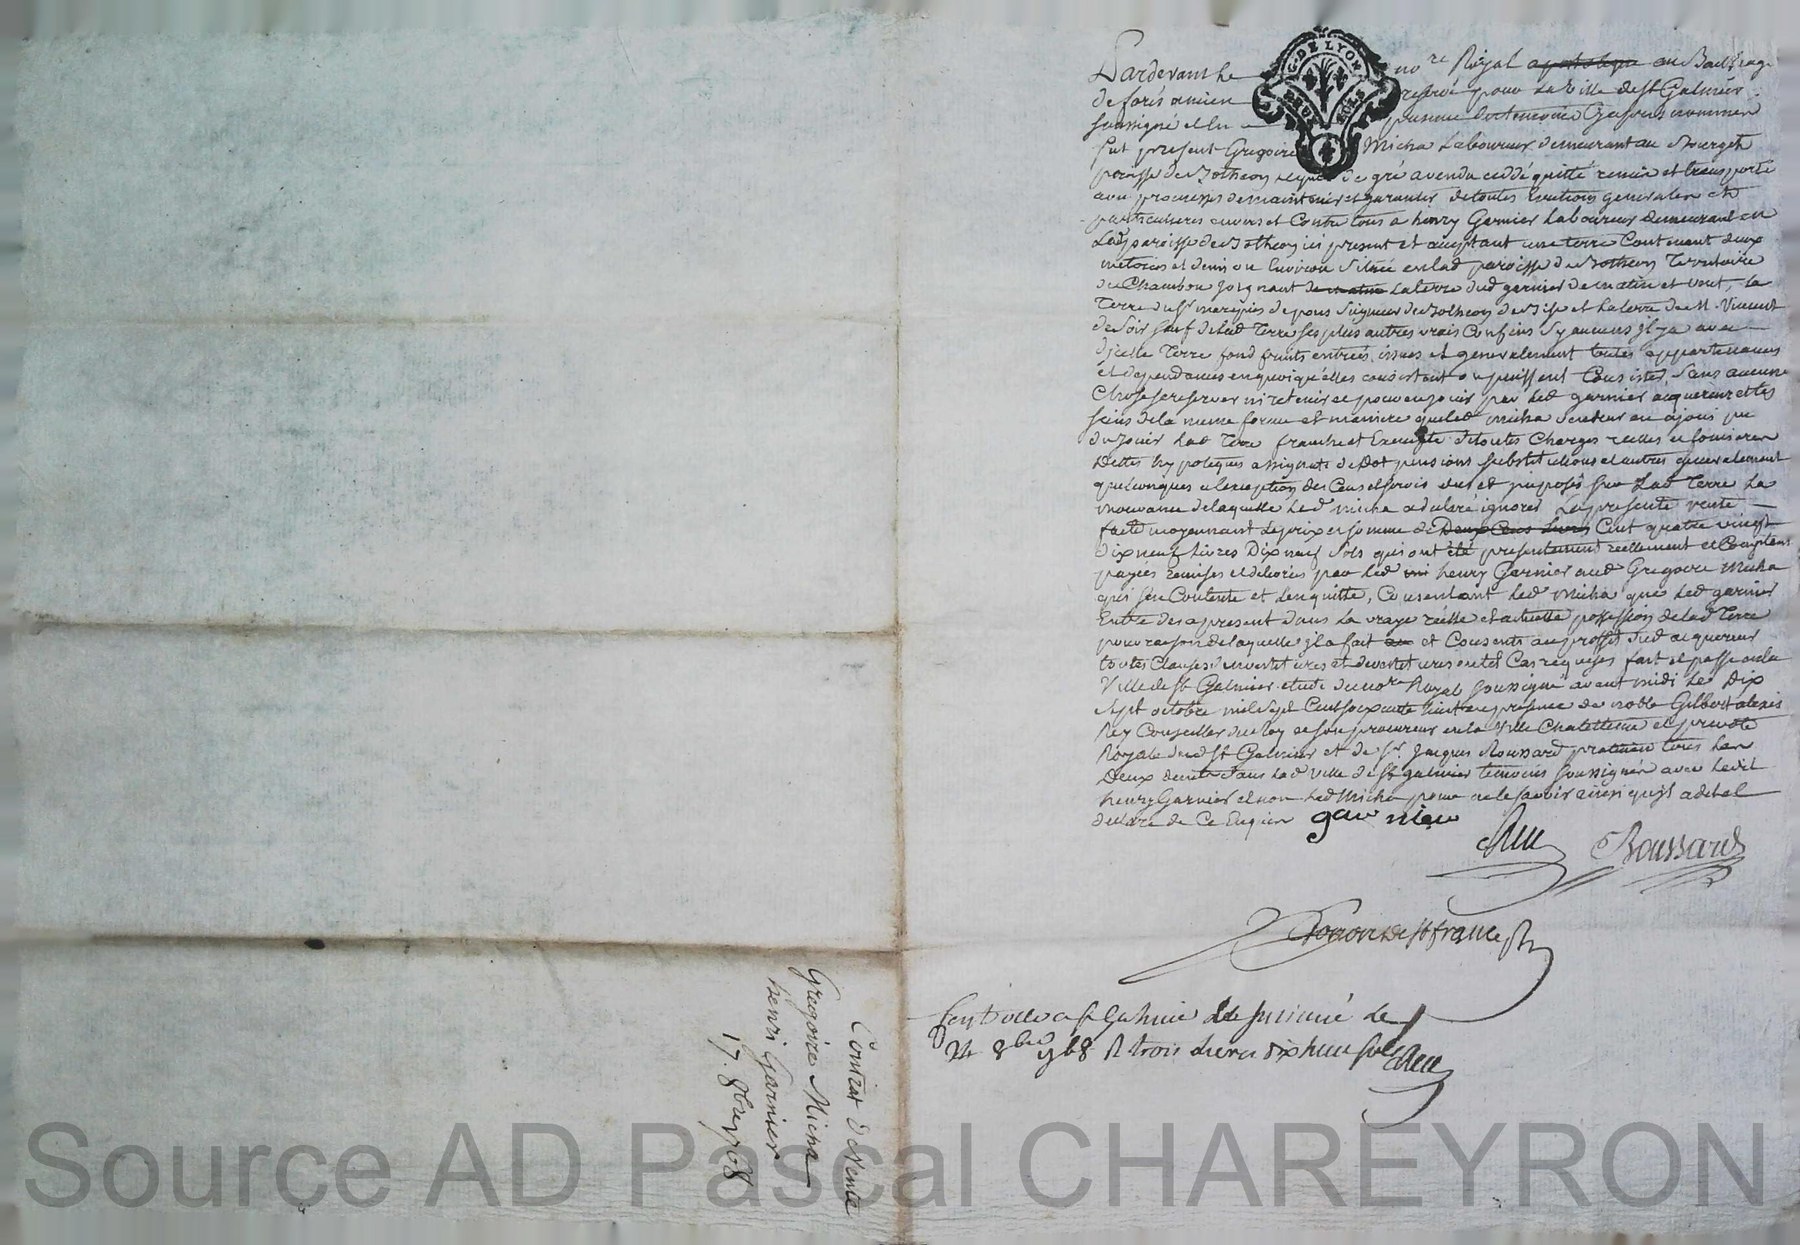 G. DE LYON
DEUX SOLS
Pardevant le no.re Royal apostolique au Bailliage
de forés ancien reservé pour la Ville de St Galmier
soussigné et en presence des temoins Cy apres nommés
fut present Gregoire Micha Laboureur demeurant au Bourg et
paroisse de Botheon lequel de gré a vendu cedé quitté remis et transporté
avec promesses de maintenir et garantir de toutes Evictions generales et
particulieres envers et Contre tous a henry Garnier Laboureur demeurant en
Lad paroisse de Botheon ici present et acceptant une terre Contenant deux
meterées et demi ou Environ Située en lad paroisse de Botheon Territoire
du Chambon joignant de matin La terre dud garnier de matin et vent, La
Terre de Sr marquis de pons Seigneur de Botheon de Bise et La terre de M. Vincent
de Soir sauf de lad Terre ses plus autres vrais Confins Sy aucuns il y a avec
d'icelle Terre fond fruits entrées issues et generalement toutes appartenances
et dependances en quoi qu'elles consistent ou puissent Consister, Sans aucune
Chose se reserver ni retenir et pour en jouir par led garnier acquereur et les
siens de la meme forme et maniere que led micha vendeur en a joui pu
du jouir Lad Terre franche et Exempte de toutes Charges reelles et foncieres
Dettes hypoteques assignats de Dot pensions substitutions et autres generalement
quelconques a l'exception des Cens et servis dus et imposés sur Lad Terre La
mouvance de laquelle led micha a declaré ignorer La presente vente
faite moyennant le prix et somme de Deux Cens livres Cent quatre vingt
dix neuf livres Dix neuf Sols qui ont été presentement reellement et Comptant
payées remises et delivrées par led mi henry Garnier aud Gregoire Micha
qui s'en Contente et l'en quitte, Consentant led micha que led garnier
Entre des a present dans La vraye réelle et actuelle possession de lad Terre
pour raison de laquelle il a fait au et Consenti au proffit dud acquereur
toutes Clauses d'investitures et devestitures en tel Cas requises fait et passé en la
Ville de St Galmier etude du no.re Royal soussigné avant midi le Dix
sept octobre mil sept Cent soixante huit en presence de noble Gilbert alexis
Rey Conseiller du Roy et son procureur en la Ville Chatellenie et prevoté
Royale dud St Galmier et de Sr Jacques Roussard praticien tous les
Deux demts dans lad Ville de St galmier temoins soussignés avec ledit
henry Garnier et non led Micha pour ne le savoir ainsi qu'il a dit et
declaré de Ce Enquis garnieu
Roussard
Controllé a St Galmier Le
24 8bre 1768 R trois livres dix huit sols
Contrat de Vente
Gregoire Micha
henri Garnier
17. 8bre 1768
Source AD Pascal CHAREYRON